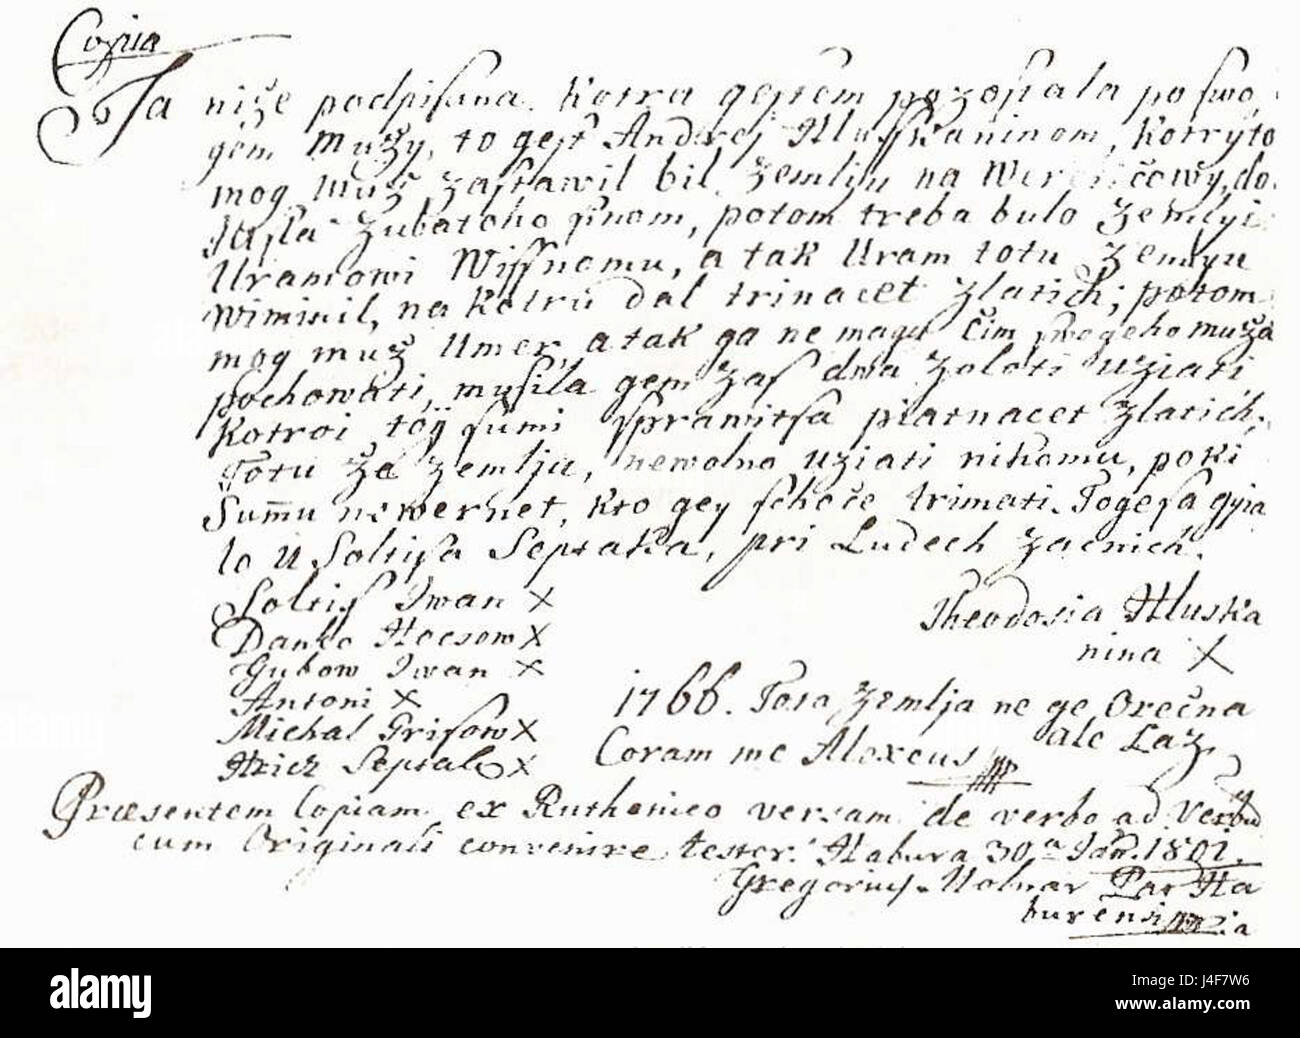 Copia
Ja niže podpisana kotra gestem pozostala po swo,
gem mužy, to gest Andrej Hluskaninom, kotryto
mog muž zastawil bil zemlju na do
Zubatoho sinom, potom treba bulo zemlyi
Uramowi Wissnomu, a tak Uram totu zemlyu
Wiminil, na kotru dal trinacet zlatich; potom
mog muž Umer, a tak ga ne magu čim swogeho muža
pochowati, musila gem zas dwa zoloti uziati
Kotroi toÿ sumi sprawitsa piatnacet zlatich.
Totu že zemlju, newolno uziati nikomu, poki
Summu newernet, kto gey schoče trimati. Togesa gyia
lo U Soltisa Septaka, pri Ludech začnich.
Soltis Iwan X
Danko Hocsow X
Gubow Iwan X
Antoni X
Michal Grisow X
Hricz Septak X
Theodosia Hluska
nina X
1766. Tota zemlja ne ge Orečna
ale Laz
Coram me Alexeus
Præsentem Copiam ex Ruthenico versam de verbo ad Verbu
cum Originali convenire tester. Habura 30a Jan. 1801.
Gregorius Molnar Par Ha
burensis
alamy
J4F7W6
www.alamy.com